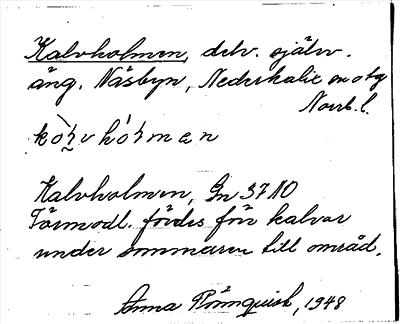 Kalvholmen, delv. själv.
äng. Näsbyn, Nederkalix sn o tg
Norrb. l.
Kalvholmen, Gn 37 A10
Törmodl. fördes för kalvar
under sommaren till områd.
Anna Rönnquist, 1948